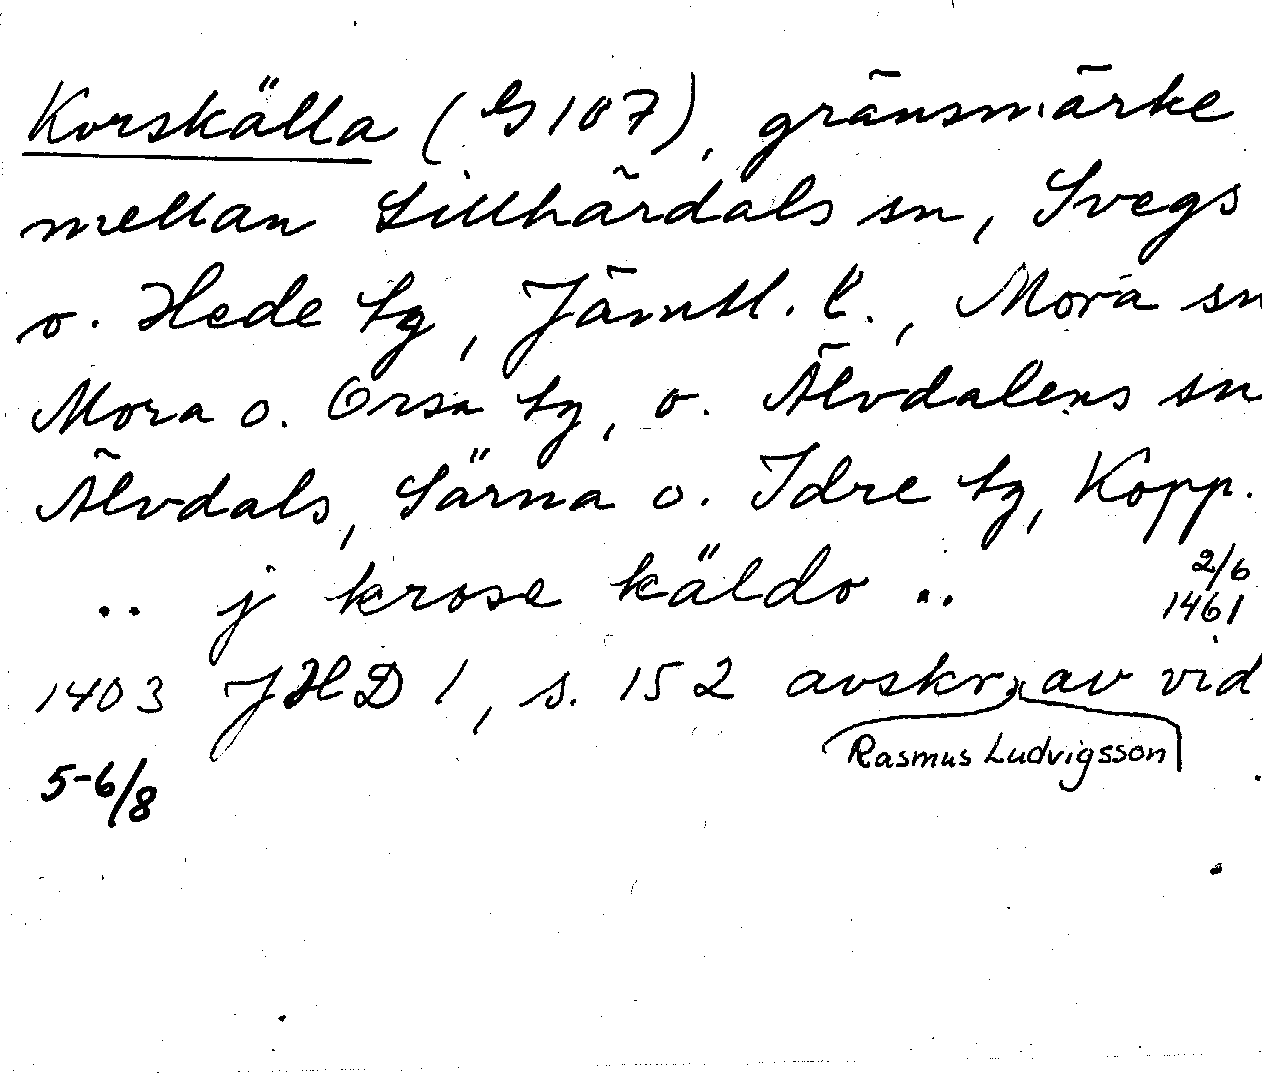 Korskälla (G 107), gränsmärke
mellan Lillhärdals sn, Svegs
o. Hede tg, Jämtl. l., Mora sn
Mora o. Orsa tg, o. Älvdalens sn
Älvdals, Särna o. Idre tg, Kopp.
.. j krose käldo .. 2/6
1461
1403 JHD 1, s. 152 avskr. av vid
Rasmus Ludvigsson
5-6/8